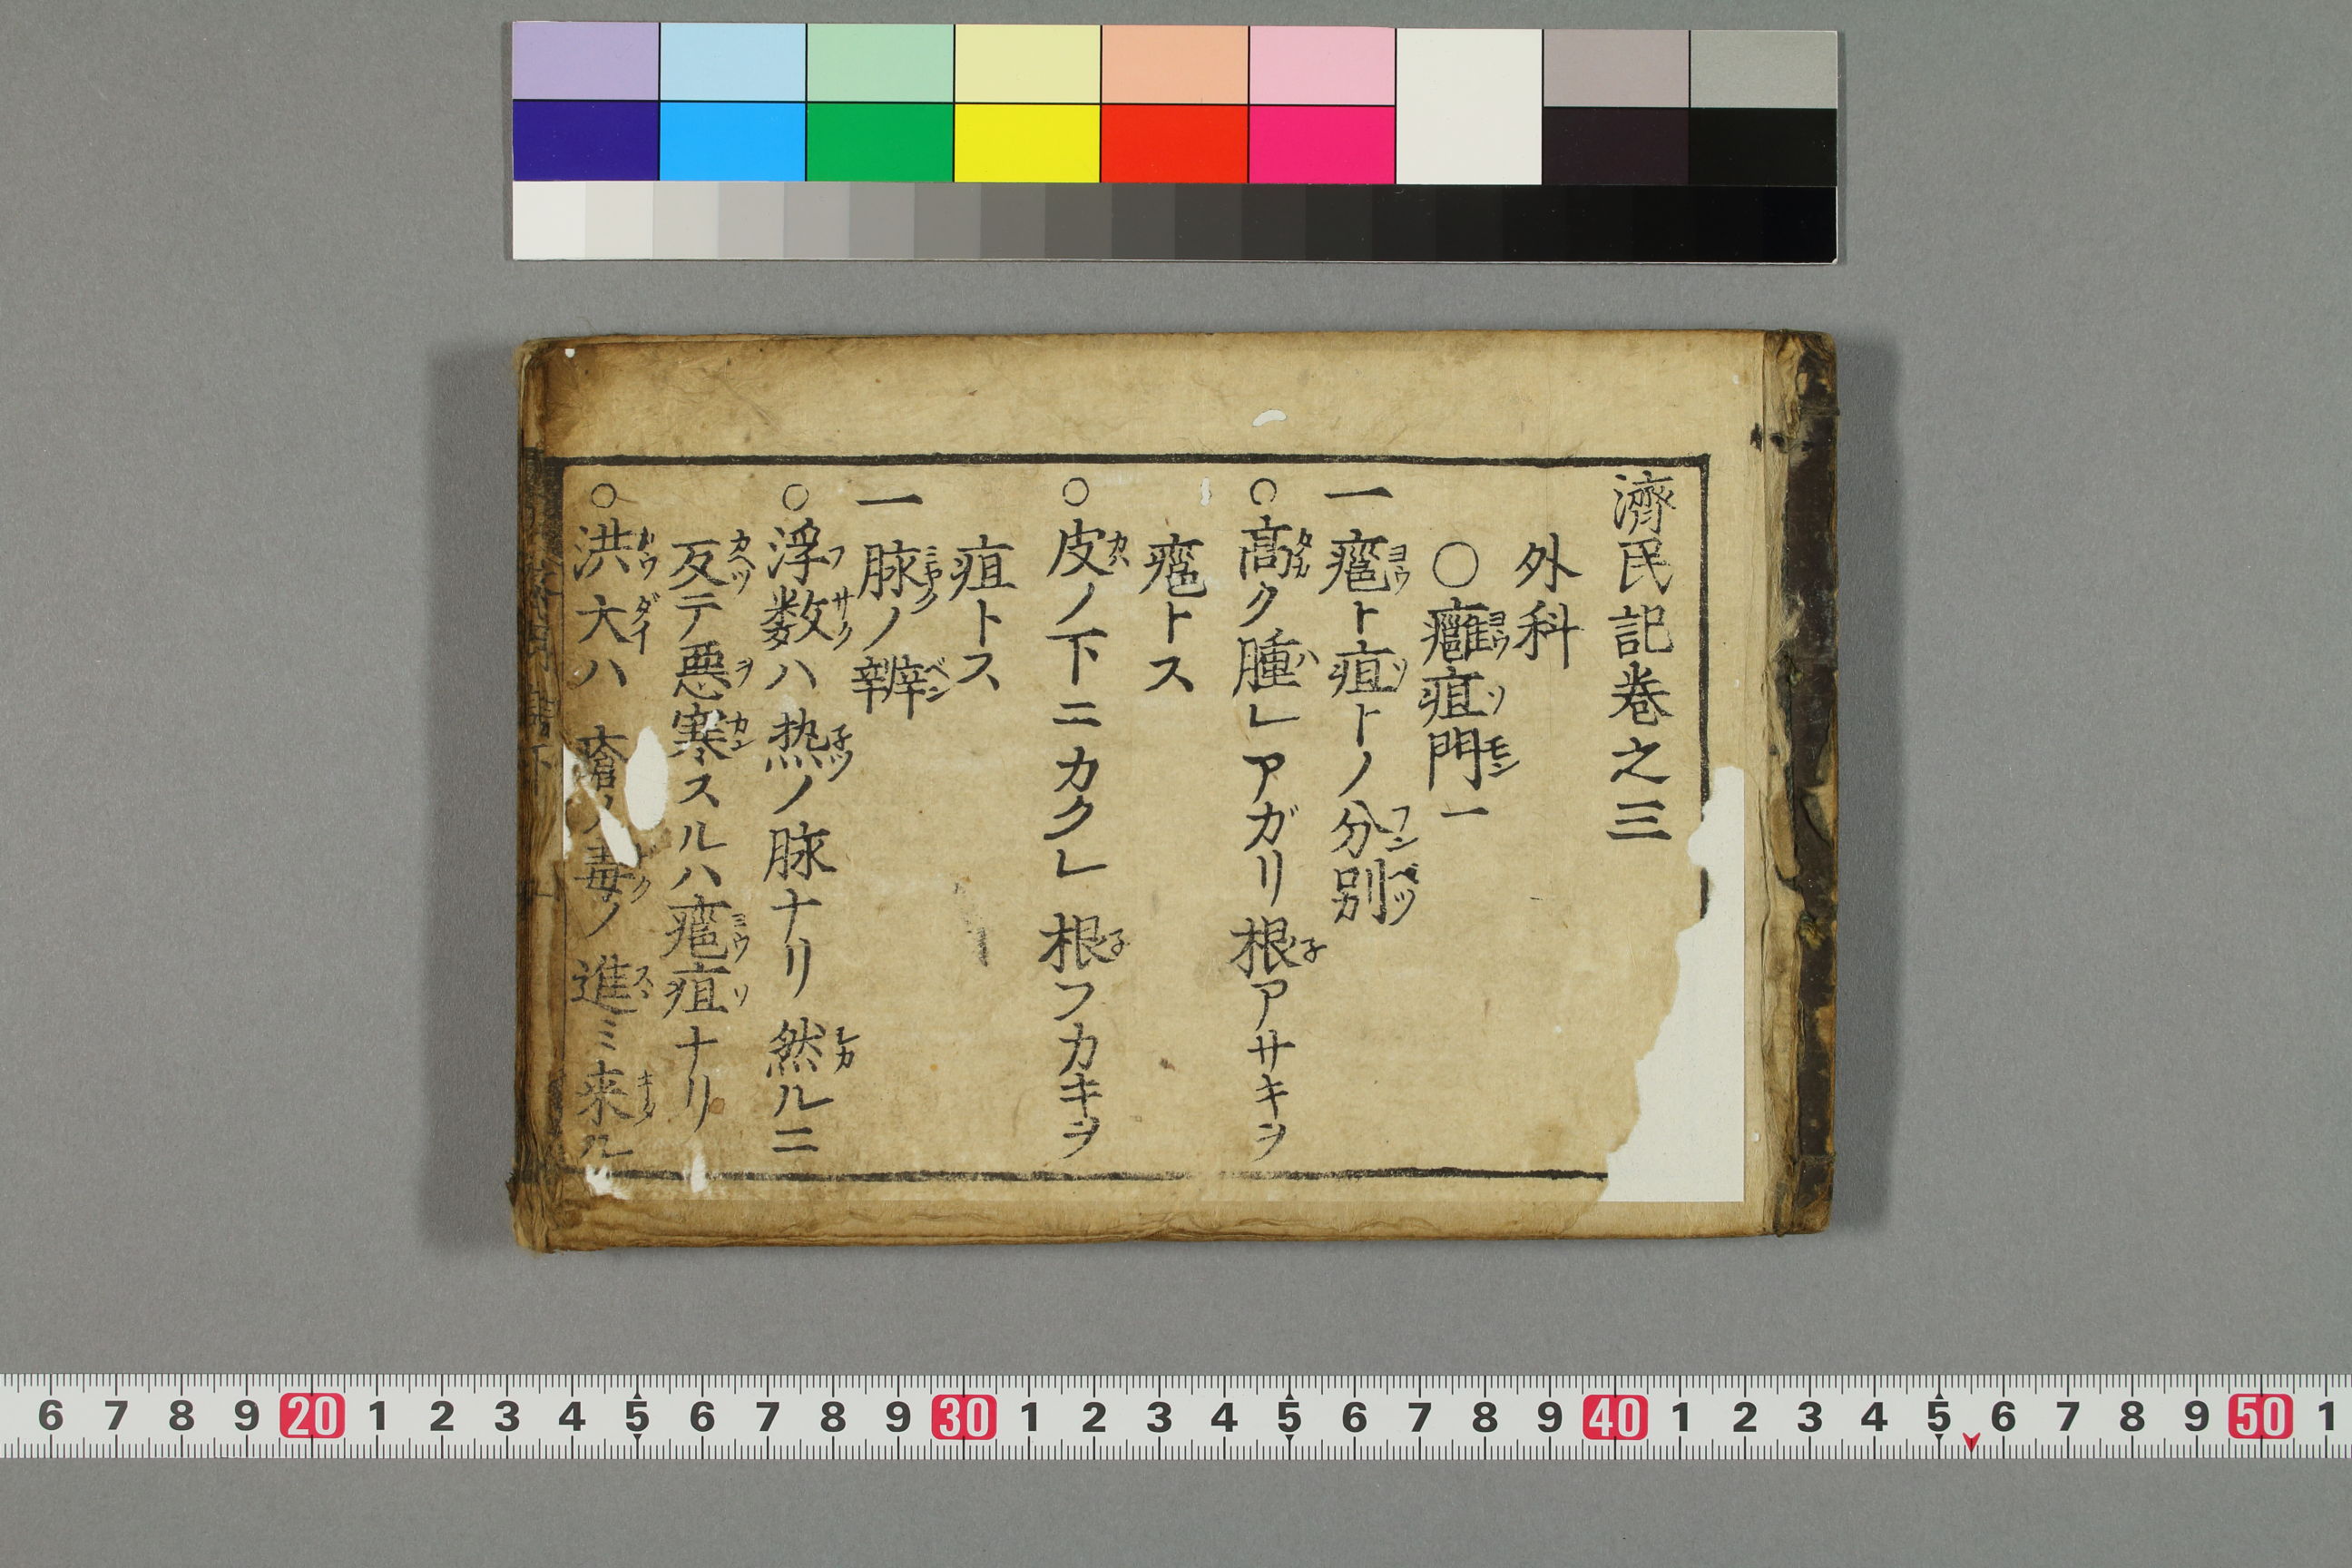 濟民記巻之三
外科
○癰疽門一
一癕ト疽トノ分別
○高ク腫レアガリ根アサキヲ
癕トス
○皮ノ下ニカクレ根フカキヲ
疽トス
一脉ノ辨
○浮数ハ热ノ脉ナリ然ルニ
反テ悪寒スルハ癕疽ナリ
○洪大ハ瘡ノ毒ノ進ミ来ル
6 7 8 9 20 1 2 3 4 5 6 7 8 9 30 1 2 3 4 5 6 7 8 9 40 1 2 3 4 5 6 7 8 9 50 1